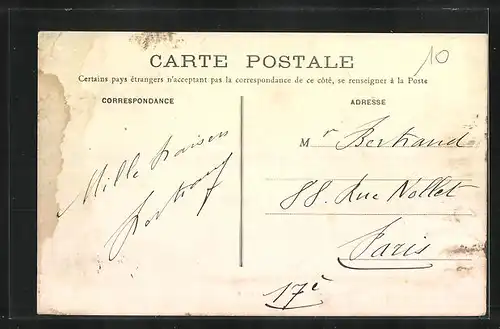 CARTE POSTALE
10
Certains pays étrangers n'acceptant pas la correspondance de ce côté, se renseigner à la Poste
CORRESPONDANCE
Mille baisers
Bertrand
ADRESSE
Mr Bertrand
88. Rue Nollet
Paris
17è